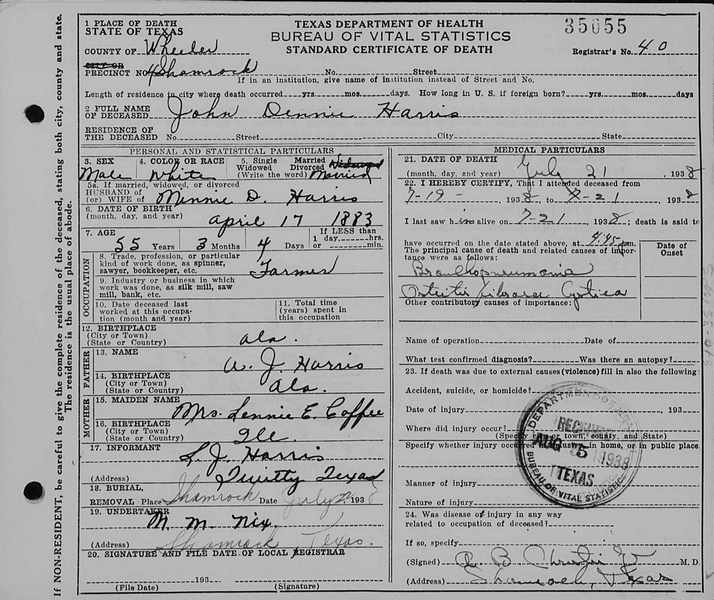 1 PLACE OF DEATH
STATE OF TEXAS
COUNTY OF Wheeler
PRECINCT NO. 4 Shamrock No. Street
TEXAS DEPARTMENT OF HEALTH
BUREAU OF VITAL STATISTICS
STANDARD CERTIFICATE OF DEATH
35055
Registrar's No. 40
If in an institution, give name of institution instead of Street and No.
Length of residence in city where death occurred yrs. mos. days. How long in U. S. if foreign born? yrs. mos. days
2 FULL NAME OF DECEASED John Dennie Harris
RESIDENCE OF THE DECEASED No. Street City State
PERSONAL AND STATISTICAL PARTICULARS
3. SEX Male
4. COLOR OR RACE White
5. Single Married Widowed Divorced (Write the word) Married
5a. If married, widowed, or divorced
HUSBAND OF (or) WIFE OF Minnie D. Harris
6. DATE OF BIRTH (month, day, and year) April 17 1883
7. AGE 55 Years 3 Months 4 Days If LESS than 1 day, hrs. or min.
OCCUPATION
8. Trade, profession, or particular kind of work done, as spinner, sawyer, bookkeeper, etc. Farmer
9. Industry or business in which work was done, as silk mill, saw mill, bank, etc.
10. Date deceased last worked at this occupation (month and year)
11. Total time (years) spent in this occupation
12. BIRTHPLACE (City or Town) (State or Country) Ala.
FATHER
13. NAME W. J. Harris
14. BIRTHPLACE (City or Town) (State or Country) Ala.
MOTHER
15. MAIDEN NAME Mrs. Lennie E. Coffee
16. BIRTHPLACE (City or Town) (State or Country)
17. INFORMANT L. J. Harris
(Address) Twitty Texas
18. BURIAL, REMOVAL Place Shamrock Date July 1938
19. UNDERTAKER M. M. Nix
Shamrock Texas.
20. SIGNATURE AND FILE DATE OF LOCAL REGISTRAR
193
(File Date) (Signature)
MEDICAL PARTICULARS
21. DATE OF DEATH (month, day, and year) July 21 1938
22. I HEREBY CERTIFY, That I attended deceased from
7-19- 1938, to 7-21, 1938
I last saw him alive on 7 21, 1938; death is said to
have occurred on the date stated above, at 4:45 pm.
The principal cause of death and related causes of importance were as follows:
Date of Onset
Bronchopneumonia
Osteitis Fibrosa Cystica
Other contributory causes of importance:
Name of operation Date of
What test confirmed diagnosis? Was there an autopsy?
23. If death was due to external causes (violence) fill in also the following:
Accident, suicide, or homicide?
Date of injury 193
Where did injury occur?
(Specify city, town, county, and State)
Specify whether injury occurred in industry, in home, or in public place.
Manner of injury
Nature of injury
24. Was disease or injury in any way related to occupation of deceased?
If so, specify
(Signed) M. D.
(Address) Shamrock, Texas
DEPARTMENT OF HEALTH
RECEIVED
AUG 1938
TEXAS
BUREAU OF VITAL STATISTICS
If NON-RESIDENT, be careful to give the complete residence of the deceased, stating both city, county and state.
The residence is the usual place of abode.